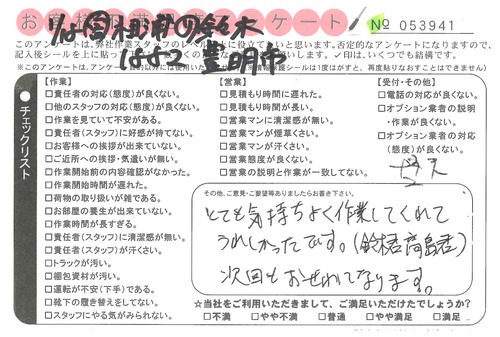 お
ケート
№ 053941
このアンケートは、弊社作業スタッフのレベル
に役立てたいと思います。否定的なアンケートになりますので、
記入後シールを上に貼っ
✓印は、いくつでも結構です。
チェックリスト
【作業】
□責任者の対応(態度)が良くない。
□他のスタッフの対応(態度)が良くない。
□作業を見ていて不安がある。
□責任者(スタッフ)に好感が持てない。
□お客様への挨拶が出来ていない。
□ご近所への挨拶・気遣いが無い。
□作業開始前の内容確認がなかった。
□作業開始時間が遅れた。
□荷物の取り扱いが雑である。
□お部屋の養生が出来ていない。
□作業時間が長すぎる。
□責任者(スタッフ)に清潔感が無い。
□責任者(スタッフ)が汗くさい。
□トラックが汚い。
□梱包資材が汚い。
□運転が不安(下手)である。
□靴下の履き替えをしてない。
□スタッフにやる気がみられない。
【営業】
□見積もり時間に遅れた。
□見積もり時間が長い。
□営業マンに清潔感が無い。
□営業マンが煙草くさい。
□営業マンが汗くさい。
□営業態度が良くない。
□営業の説明と作業が一致してない。
【受付・その他】
□電話の対応が良くない。
□オプション業者の説明
・作業が良くない。
□オプション業者の対応
(態度)が良くない。
その他、ご意見・ご要望等ありましたらお書き下さい。
とても気持ちよく作業してくれて
うれしかったです。(鈴樹君高島君)
次回もおせわになります。
☆当社をご利用いただきまして、ご満足いただけたでしょうか?
□不満 □やや不満 □普通 □やや満足 □満足